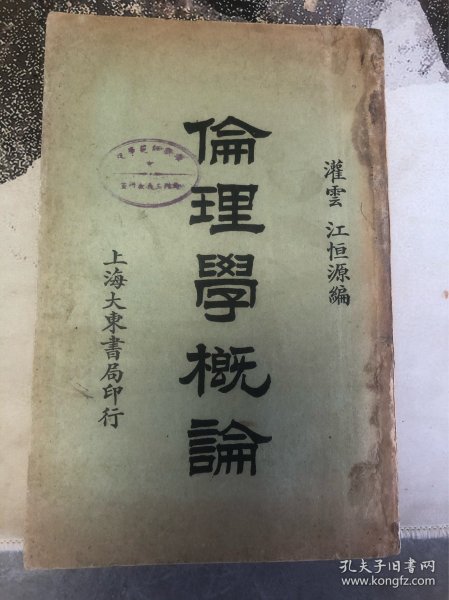 灌雲 江恒源編
倫理學概論
上海大東書局印行
孔夫子旧书网
www.kongfz.com